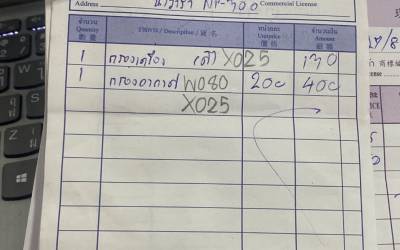 Address นาวาร่า NP-300 Commercial License
จำนวน รายการ / Descriptive / 貨名 หน่วยละ จำนวนเงิน
Quantity Unitprice Amount
數量 價格 銀碼
1 กรองเครื่อง X025 170
1 กรองอากาศ W080 200 400
X025